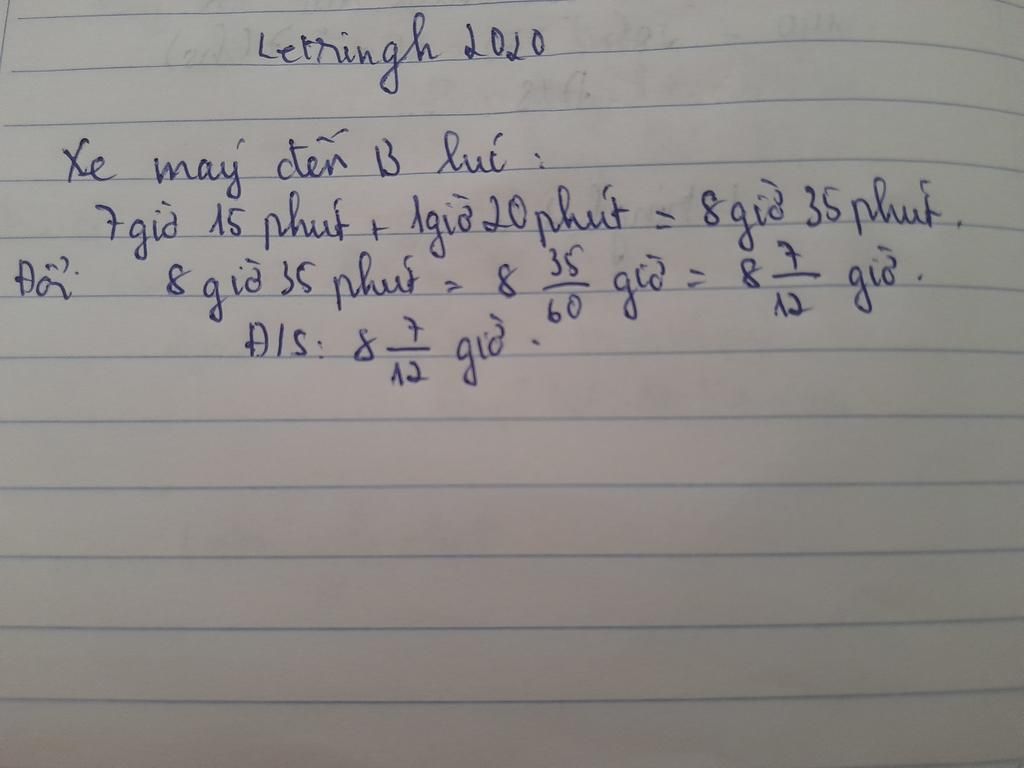 Letringh 2020
Xe máy đến B lúc :
7 giờ 15 phút + 1 giờ 20 phút = 8 giờ 35 phút.
Đổi: 8 giờ 35 phút = 8 35/60 giờ = 8 7/12 giờ.
Đ/S: 8 7/12 giờ.